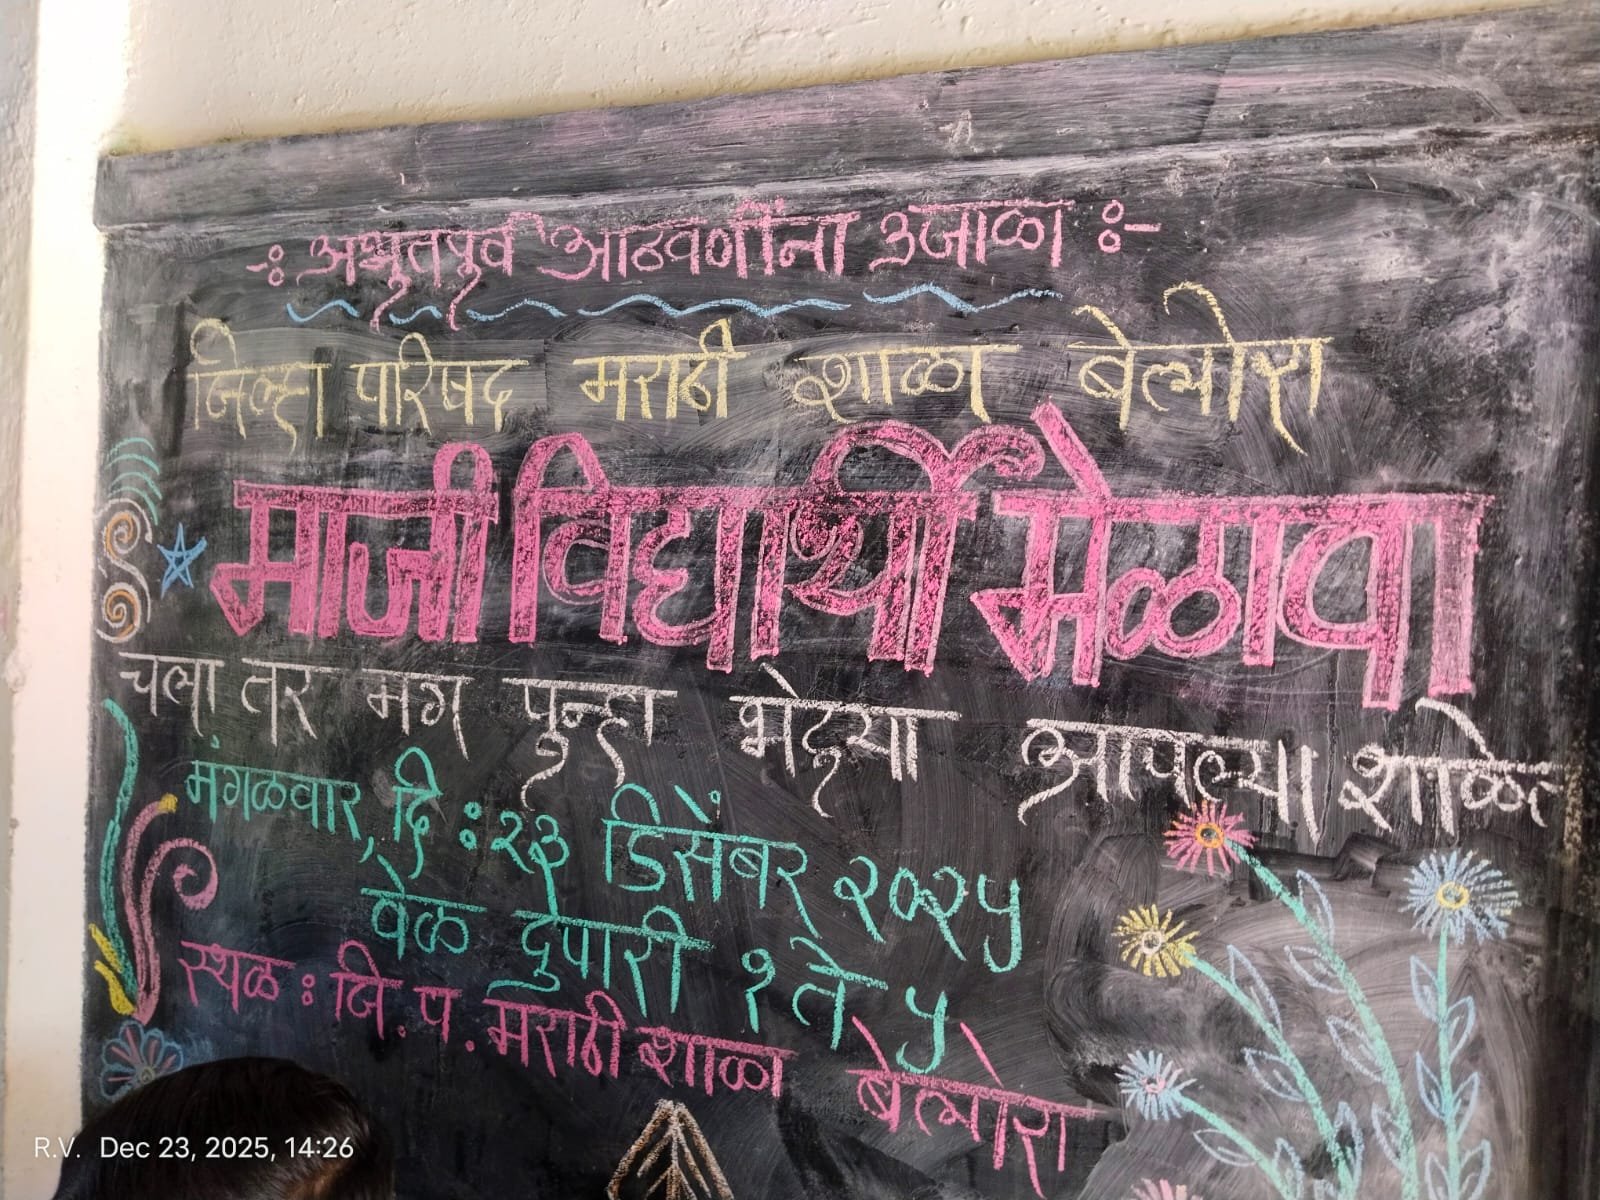 -: अभूतपूर्व आठवणींना उजाळा :-
जिल्हा परिषद मराठी शाळा बेलोरा
माजी विद्यार्थी मेळावा
चला तर मग पुन्हा भेटूया आपल्या शाळेत
मंगळवार, दि : २३ डिसेंबर २०२५
वेळ दुपारी १ ते ५
स्थळ : जि. प. मराठी शाळा बेलोरा
R.V. Dec 23, 2025, 14:26